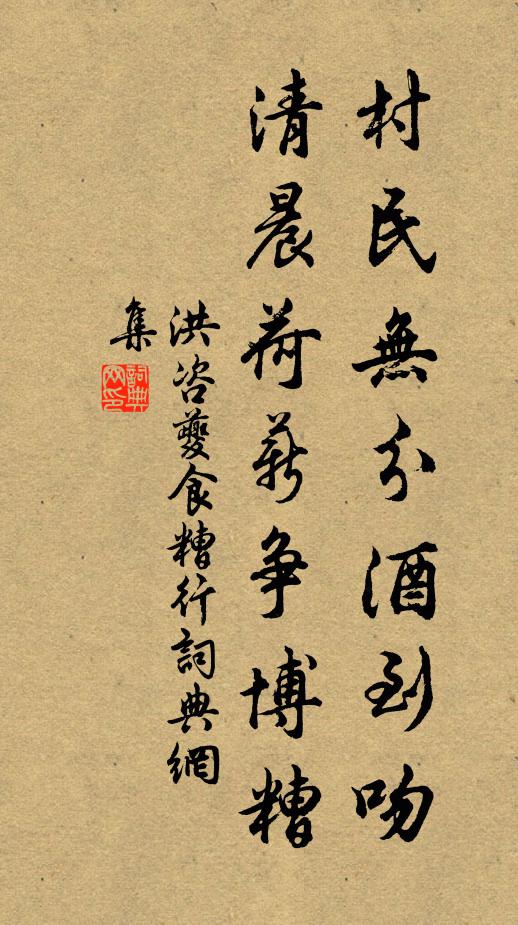 村民無分酒到吻
清晨荷薪争博糟
洪咨夔食糟行詞典網
集
詞典網印